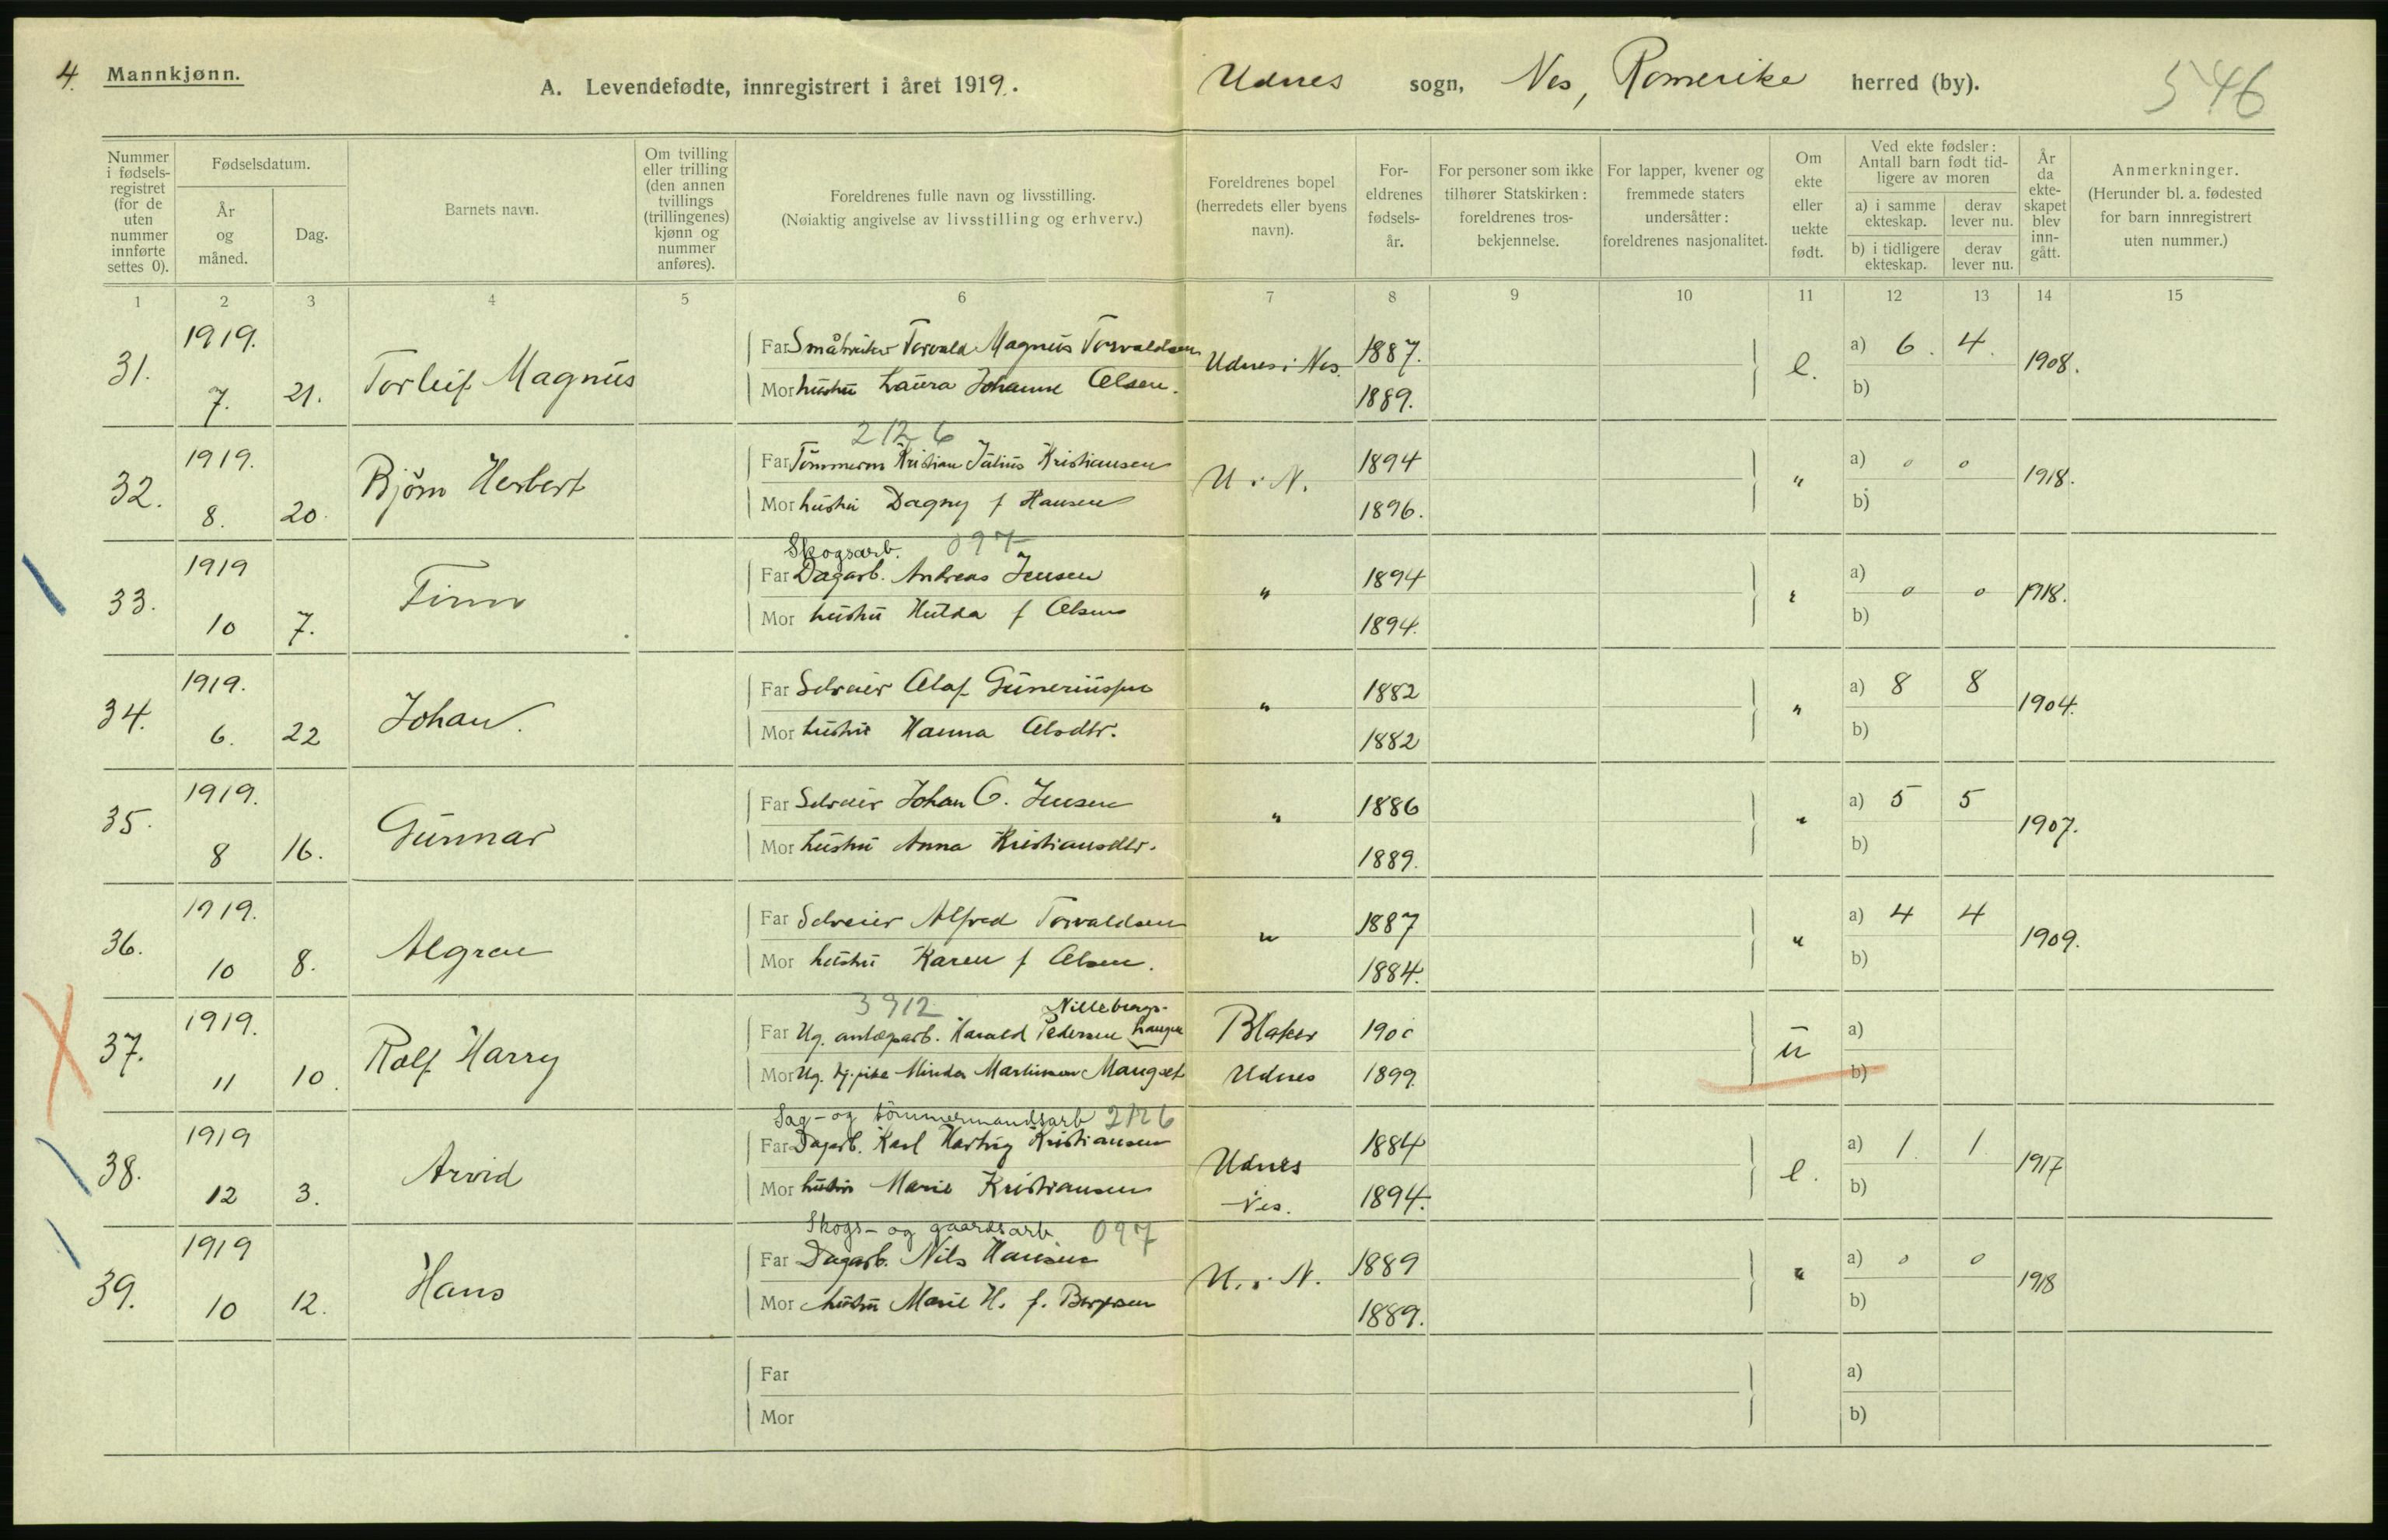 4. Mannkjønn.
A. Levendefødte, innregistrert i året 1919.
Udnes sogn, Nes, Romerike herred (by).
546
Nummer i fødselsregistret (for de uten nummer innførte settes 0).
Fødselsdatum.
År og måned.
Dag.
Barnets navn.
Om tvilling eller trilling (den annen tvillings (trillingenes) kjønn og nummer anføres).
Foreldrenes fulle navn og livsstilling.
(Nøiaktig angivelse av livsstilling og erhverv.)
Foreldrenes bopel (herredets eller byens navn).
Foreldrenes fødselsår.
For personer som ikke tilhører Statskirken: foreldrenes trosbekjennelse.
For lapper, kvener og fremmede staters undersåtter: foreldrenes nasjonalitet.
Om ekte eller uekte født.
Ved ekte fødsler: Antall barn født tidligere av moren
a) i samme ekteskap.
derav lever nu.
b) i tidligere ekteskap.
derav lever nu.
År da ekteskapet blev inngått.
Anmerkninger.
(Herunder bl. a. fødested for barn innregistrert uten nummer.)
1 2 3 4 5 6 7 8 9 10 11 12 13 14 15
31. 1919. 7. 21. Torleif Magnus
Far Småbruker Torvald Magnus Torvaldsen Udnes i Nes. 1887. e. a) 6. 4. 1908.
Mor hustru Laura Johanne Olsen. 1889. b)
2126
32. 1919. 8. 20. Bjørn Herbert
Far Tømmerm Kristian Julius Kristiansen U i N. 1894 " a) 0 0 1918.
Mor hustru Dagny f Hansen 1896. b)
Skogsarb. 097
33. 1919 10 7. Finn
Far Dagarb. Andreas Jensen " 1894 " a) 0 0 1918.
Mor hustru Hulda f Olsen 1894. b)
34. 1919. 6. 22 Johan.
Far Selveier Olaf Guneriussen " 1882 " a) 8 8 1904.
Mor hustru Hanna Olsdtr. 1882 b)
35. 1919. 8 16. Gunnar
Far Selveier Johan O. Jensen " 1886 " a) 5 5 1907.
Mor hustru Anna Kristiansdtr. 1889. b)
36. 1919. 10 8. Algren
Far Selveier Alfred Torvaldsen " 1887 " a) 4 4 1909.
Mor hustru Karen f Olsen. 1884. b)
3912 Nillebergs-
37. 1919. 11 10. Rolf Harry
Far Ug. anlægsarb. Harald Pedersen haugen Blaker 1900 u a)
Mor Ug. tj.pike Minda Martinsen Maugset Udnes 1899. b)
Sag- og tömmermandsarb 2126
38. 1919 12 3. Arvid
Far Dagarb. Karl Hartvig Kristiansen Udnes 1884 e. a) 1. 1 1917
Mor hustru Marie Kristiansen Nes. 1894. b)
Skogs- og gaardsarb. 097
39. 1919 10 12. Hans
Far Dagarb. Nils Hansen U. i N. 1889 " a) 0 0 1918
Mor hustru Marie H. f. 1889. b)
Far a)
Mor b)